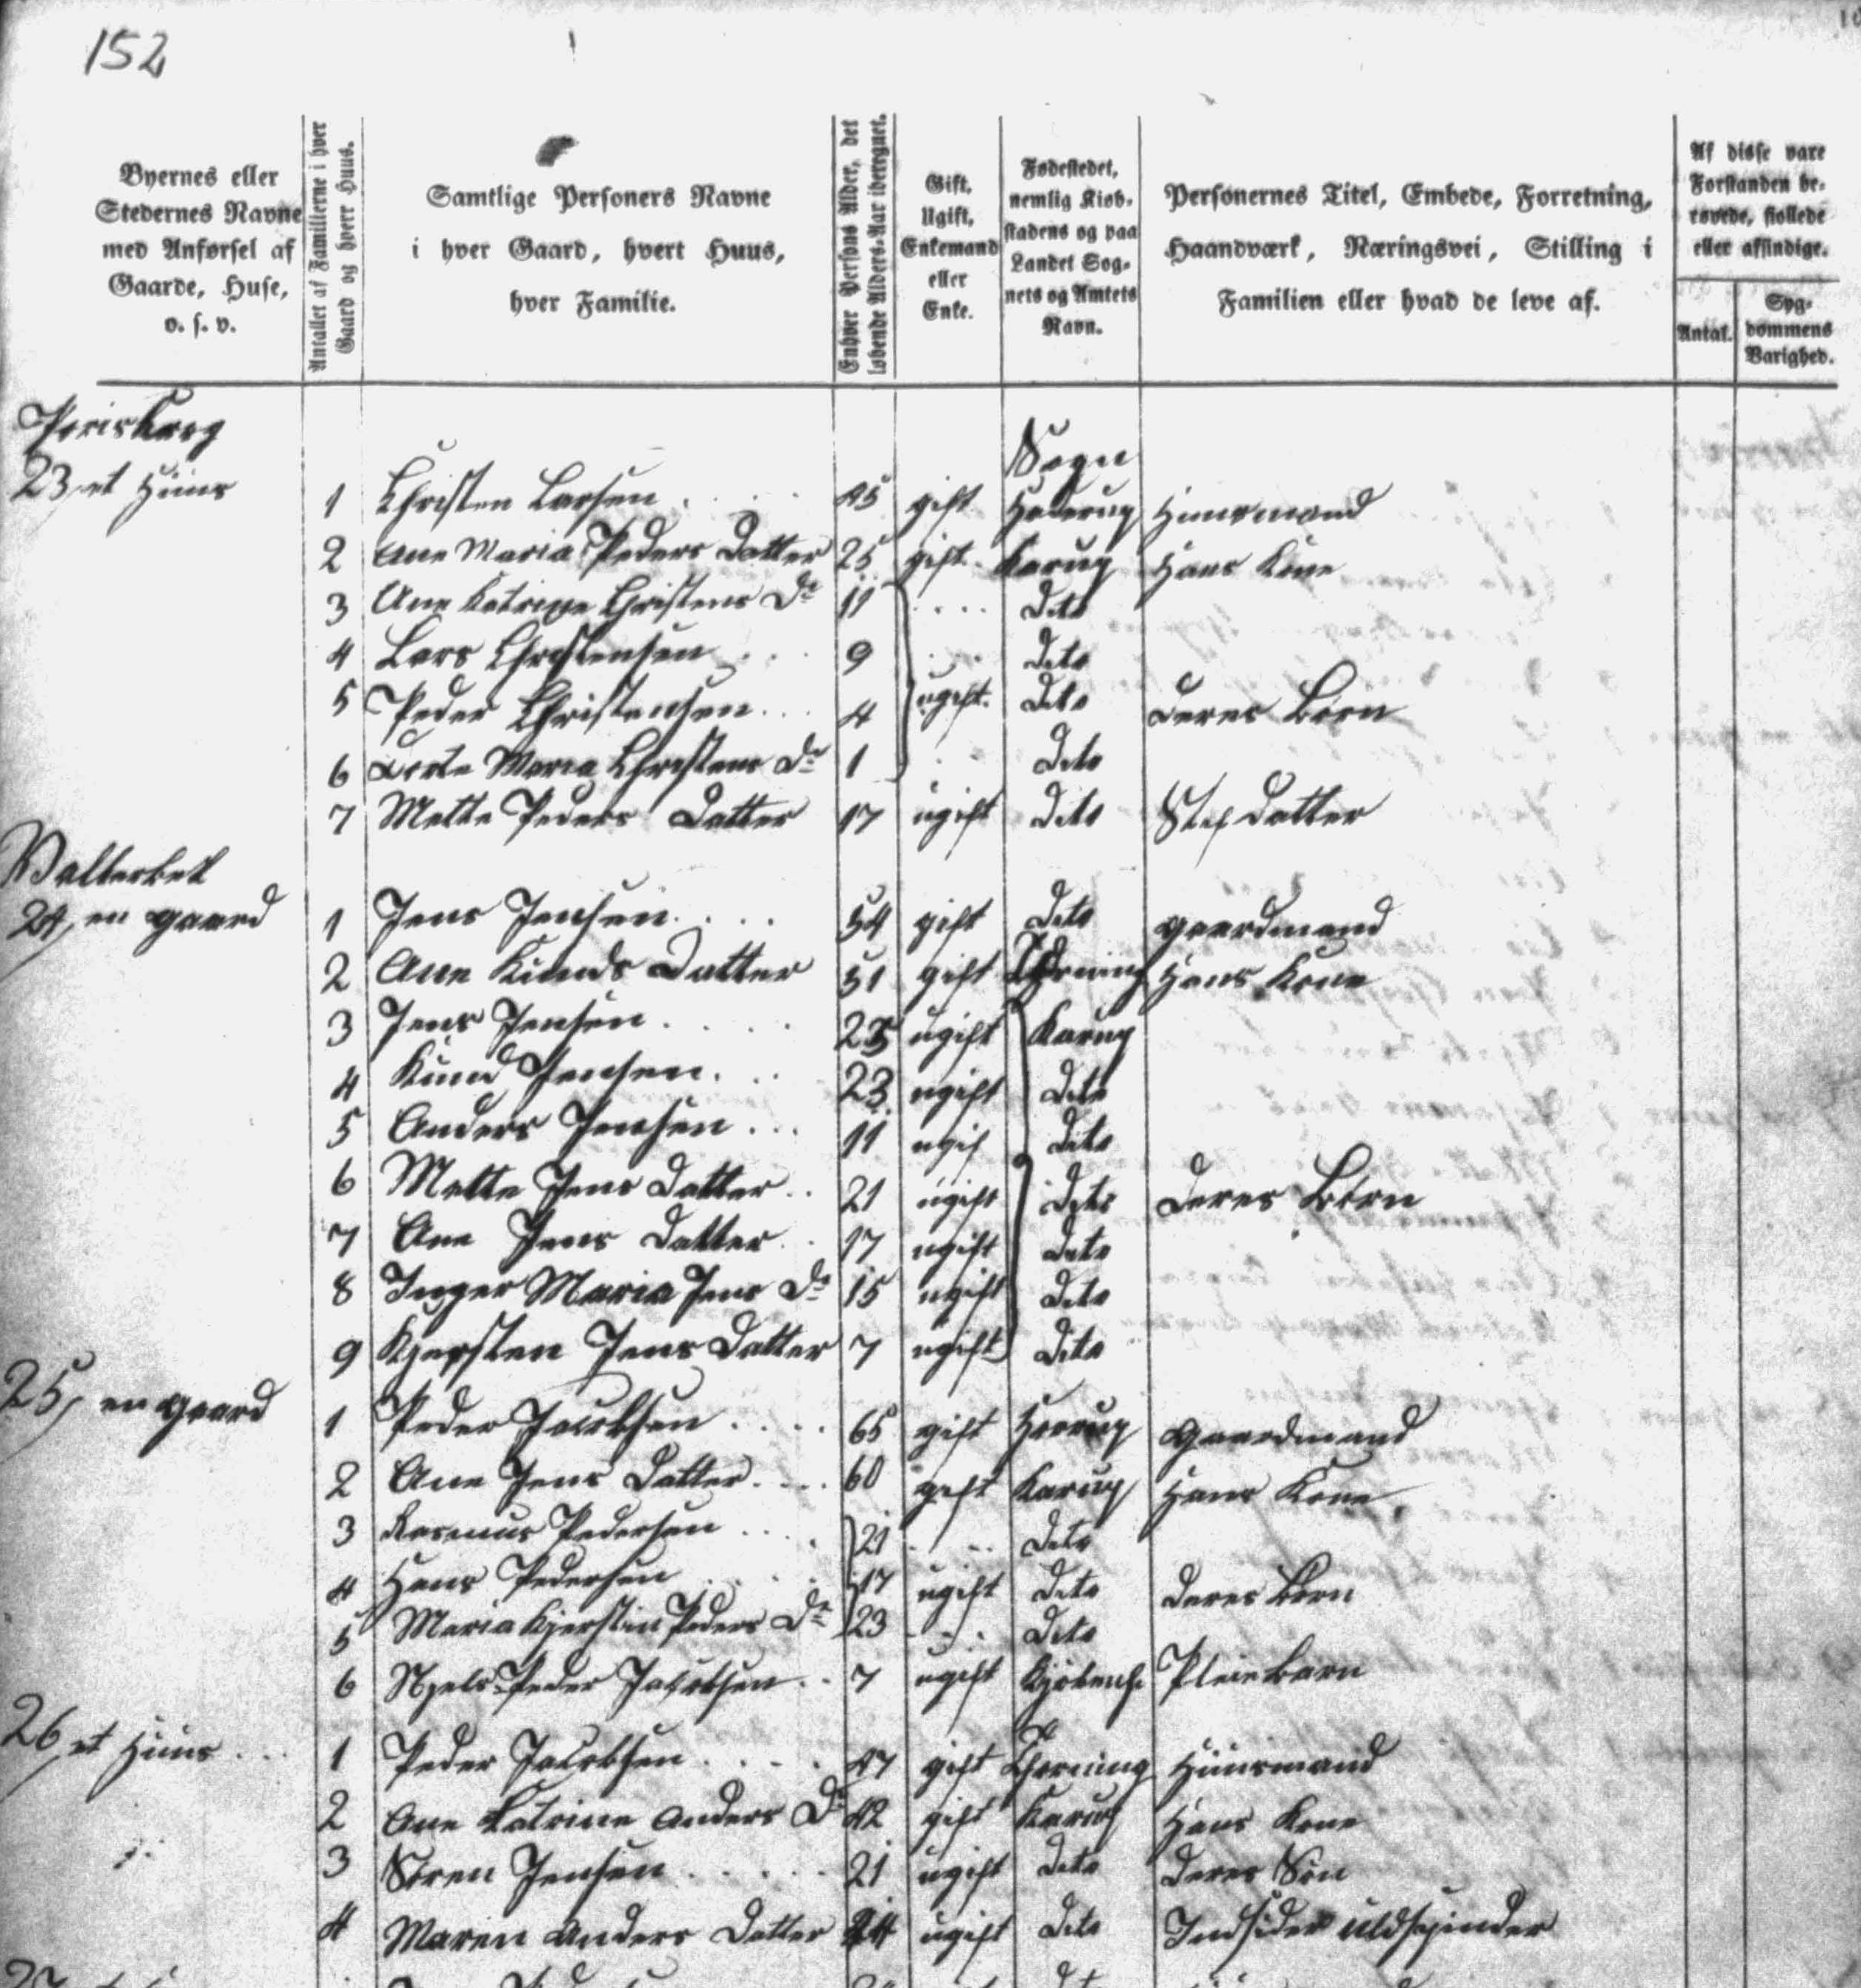 152
Byernes eller Stedernes Navne med Anførsel af Gaarde, Huse, o. s. v.
Antallet af Familierne i hver Gaard og hvert Huus.
Samtlige Personers Navne i hver Gaard, hvert Huus, hver Familie.
Enhver Persons Alder, det løbende Alders-Aar iberegnet.
Gift, Ugift, Enkemand eller Enke.
Fødestedet, nemlig Kiøbstadens og paa Landet Sognets og Amtets Navn.
Personernes Titel, Embede, Forretning, Haandværk, Næringsvei, Stilling i Familien eller hvad de leve af.
Af disse vare Forstanden berøvede, fiollede eller afsindige.
Antal.
Sygdommens Varighed.
Sogn
23, et Huus 1 Christen Larsen 45 gift Haderup Huusmand
2 Ane Maria Peders Datter 25 gift Karup Hans Kone
3 Ane Katrine Christens Dr 11 Dito
4 Lars Christensen 9 Dito
5 Peder Christensen 4 ugift Dito Deres Börn
6 Dorte Maria Christens Dr 1 Dito
7 Mette Peders Datter 17 ugift Dito Stifdatter
24, en gaard 1 Jens Jensen 54 gift Dito gaardmand
2 Ane Knuds Datter 51 gift Thorning Hans Kone
3 Jens Jensen ugift Karup
4 Knud Jensen 23 ugift Dito
5 Anders Jensen 11 ugif Dito
6 Mette Jens Datter 21 ugift Dito Deres Börn
7 Ane Jens Datter 17 ugift Dito
8 Inger Maria Jens Dr 15 ugift Dito
9 Kjersten Jens Datter 7 ugift Dito
25, en gaard 1 Peder Jacobsen 65 gift gaardmand
2 Ane Jens Datter 60 gift Karup Hans Kone
3 Rasmus Pedersen 21 Dito
4 Hans Pedersen 17 ugift Dito Deres Börn
5 Maria Kjerstin Peders Dr 23 Dito
6 Njels Peder Jacobsen 7 ugift Kjöbenh. Pleiebarn
26, et Huus 1 Peder Jacobsen 47 gift Thorning Huusmand
2 Ane Katrine Anders Dr 42 gift Karup Hans Kone
3 Sören Jensen 21 ugift Dito Deres Sön
4 Maren Anders Datter ugift Dito Indsider uldspinder